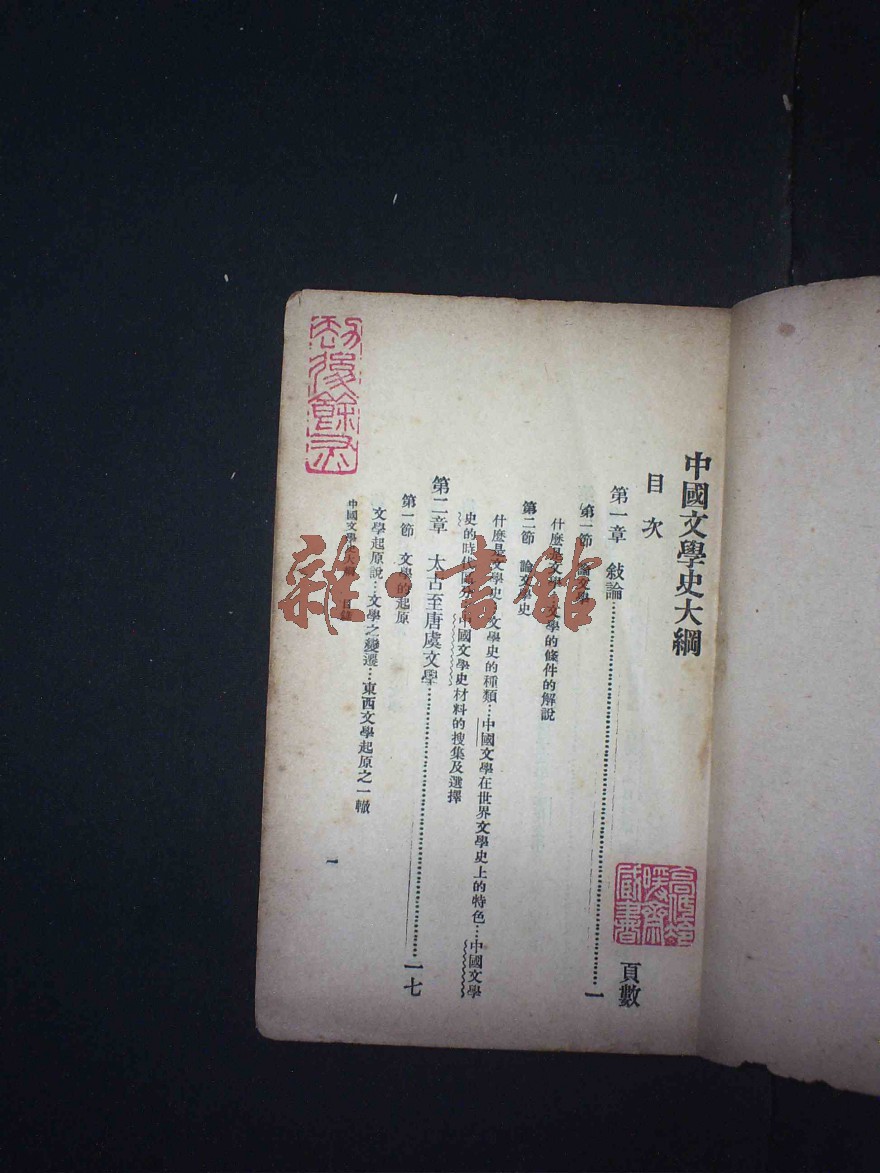 中國文學史大綱
目次
頁數
第一章 敍論……一
第一節 論文學
什麽是文學…文學的條件的解說
第二節 論文學史
什麽是文學史…文學史的種類…中國文學在世界文學史上的特色…中國文學
史的時代區分…中國文學史材料的搜集及選擇
第二章 太古至唐虞文學……一七
第一節 文學的起原
文學起原說…文學之變遷…東西文學起原之一轍
中國文學史大綱 目錄
一
劫後餘灰
雜·書館